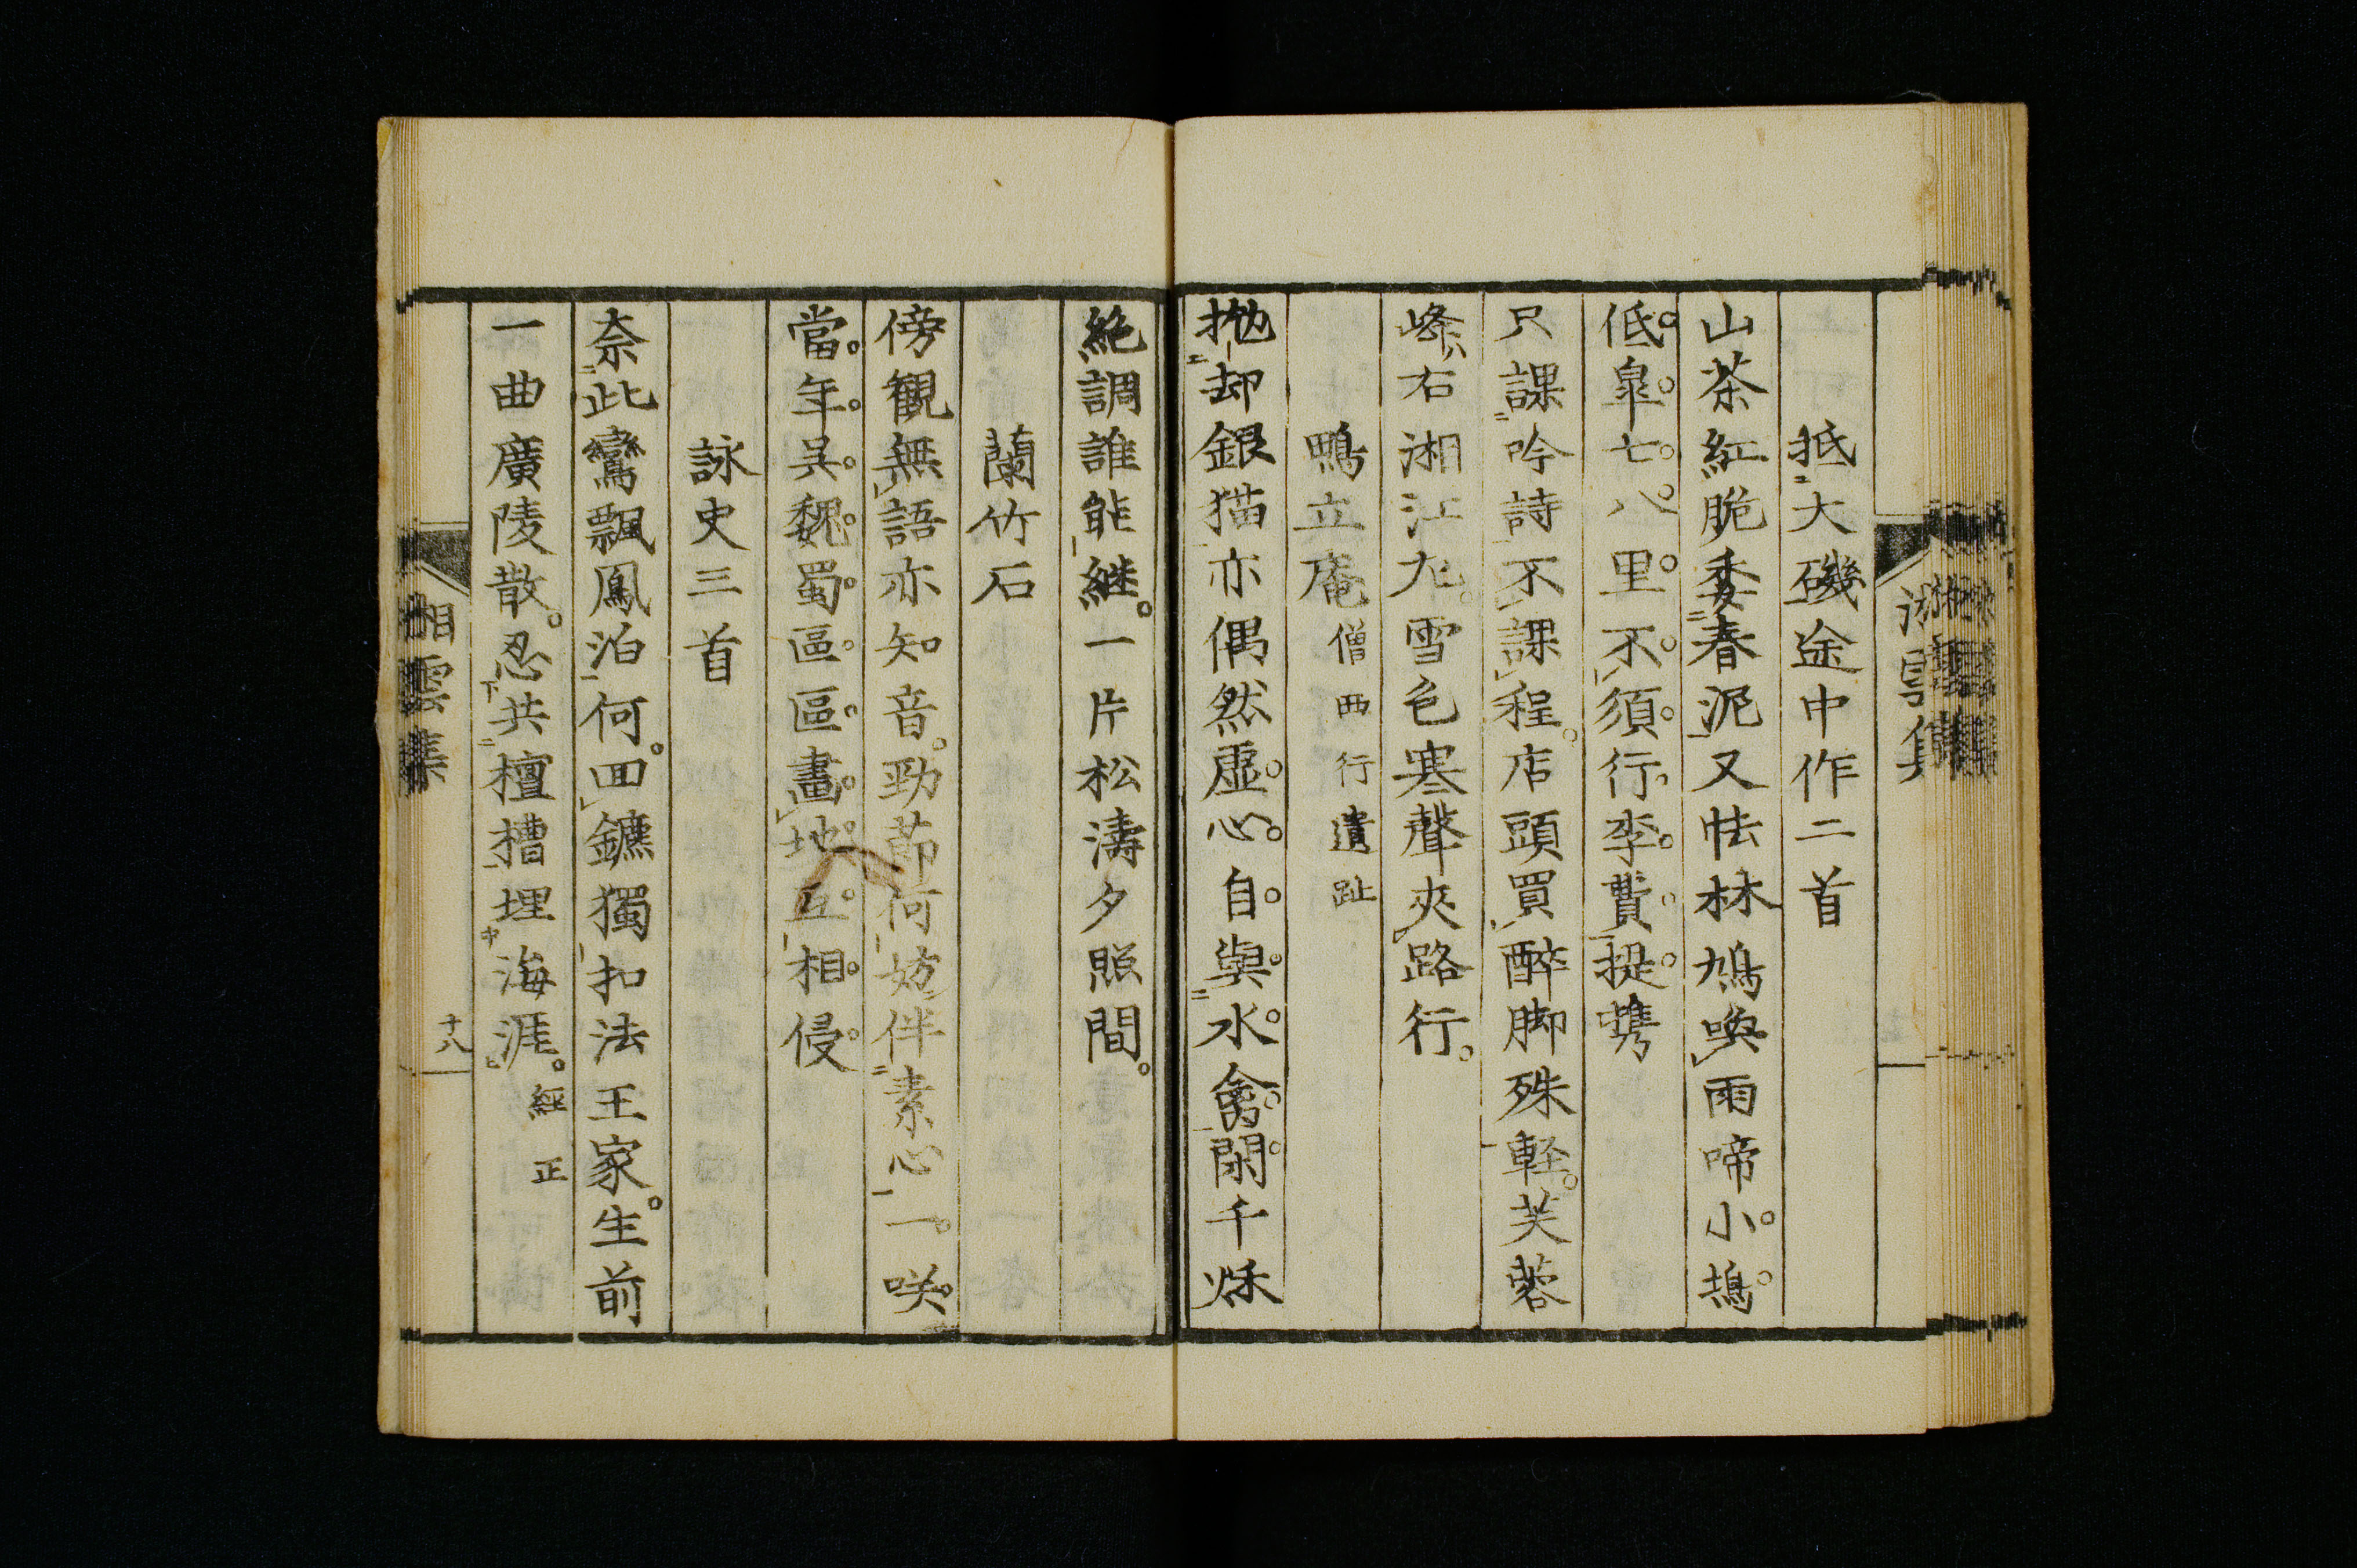 抵大磯途中作二首
山茶紅脆委春泥又怯林鳩喚雨啼小塢
低皐七八里不須行李費提携
只課吟詩不課程店頭買醉脚殊軽芙蓉
峰右湘江九雪色寒聲夾路行
鴫立庵僧西行遺趾
抛却銀猫亦偶然虚心自與水禽閑千烁
絶調誰能継一片松濤夕照間
蘭竹石
傍観無語亦知音勁節何妨伴素心一咲
當年呉魏蜀區區畫地互相侵
詠史三首
奈此鸞飄鳳泊何回鑣獨扣法王家生前
一曲廣陵散忍共檀槽埋海涯經正
湘雲集
十八